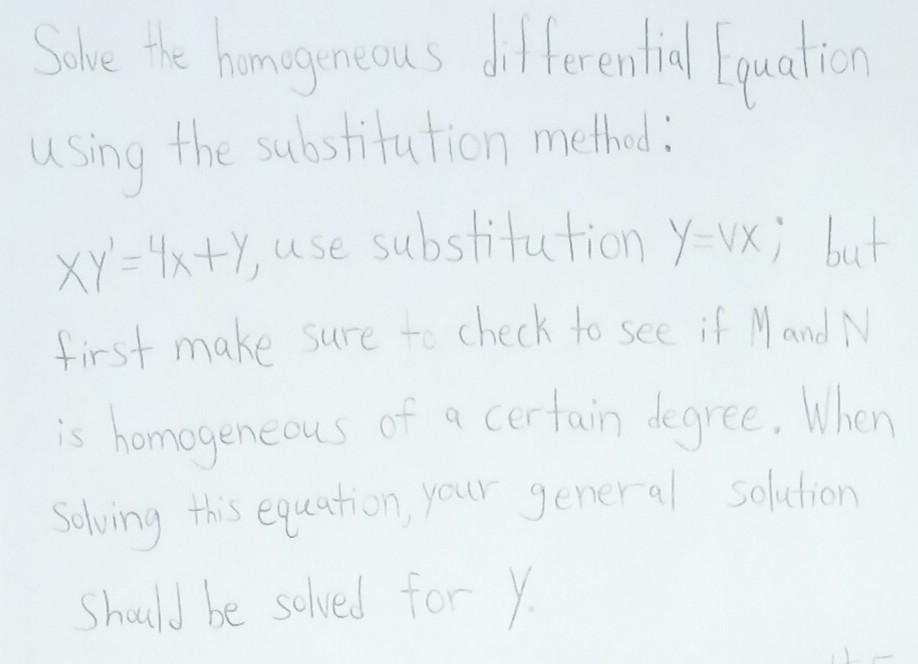 Solve the homogeneous differential Equation
using the substitution method:
xy'=4x+y, use substitution y=vx; but
first make sure to check to see if M and N
is homogeneous of a certain degree. When
solving this equation, your general solution
should be solved for y.